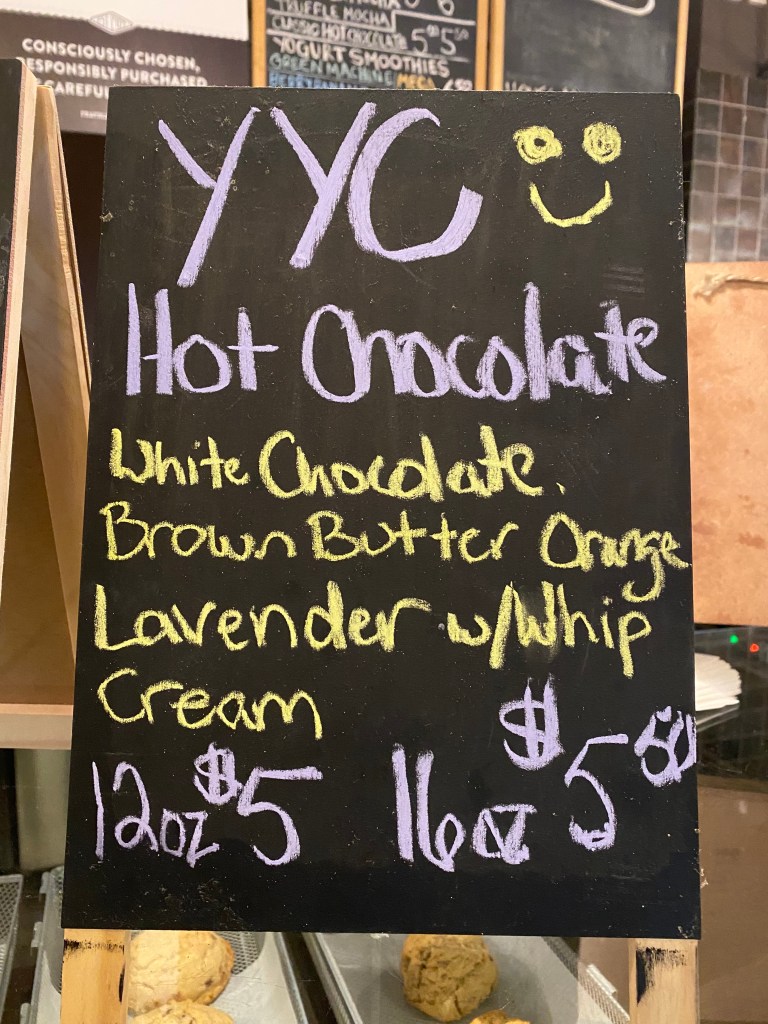 CONSCIOUSLY CHOSEN,
RESPONSIBLY PURCHASED
CAREFUL
TRUFFLE MOCHA
CLASSIC HOT CHOCOLATE 5 5⁵⁰
YOGURT SMOOTHIES
GREEN MACHINE MEGA
YYC
Hot Chocolate
White Chocolate.
Brown Butter Orange
Lavender w/Whip
Cream
12oz $5 16oz $5⁵⁰